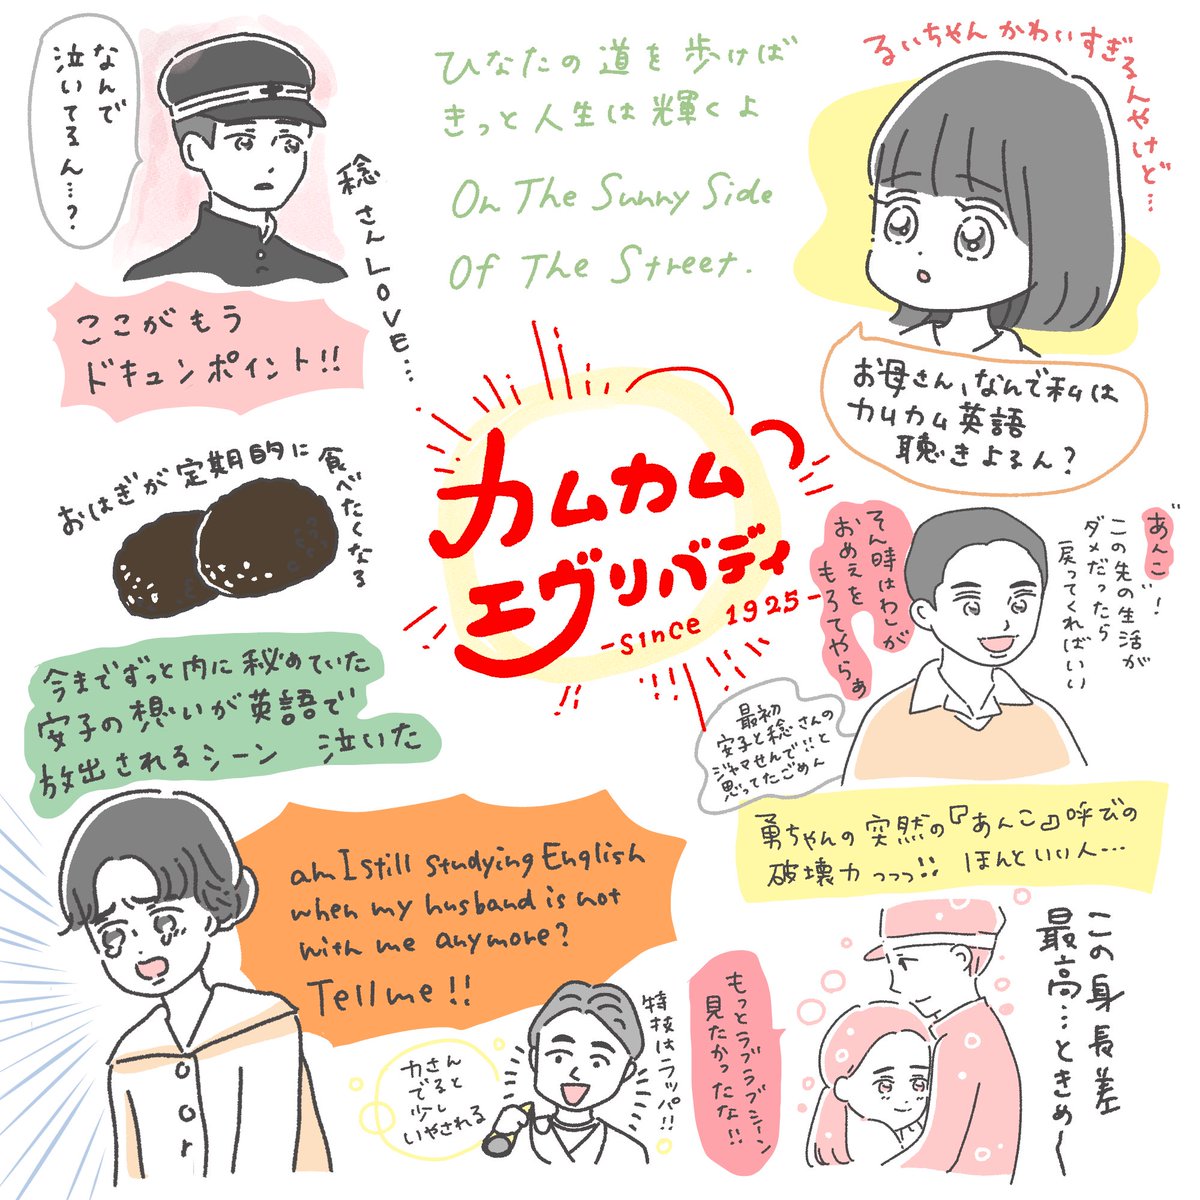 なんで
泣いてるん…?
稔さんLOVE…
ここがもう
ドキュンポイント!!
ひなたの道を歩けば
きっと人生は輝くよ
On The Sunny Side
Of The Street.
るいちゃんかわいすぎるんやけど…
お母さん、なんで私は
カムカム英語
聴きよるん?
おはぎが定期的に食べたくなる
カムカム
エヴリバディ
-since 1925-
"あんこ"!
この先の生活が
ダメだったら
戻ってくればいい
そん時はわしが
おめえを
もろてやらぁ
最初
安子と稔さんの
ジャマせんで!!と
思ってたごめん
勇ちゃんの突然の『あんこ』呼びの
破壊力っっっ!! ほんといい人…
今までずっと内に秘めていた
安子の想いが英語で
放出されるシーン 泣いた
am I still studying English
when my husband is not
with me anymore?
Tell me!!
特技はラッパ!!
力さん
でると
少し
いやされる
この身長差
最高…ときめ〜
もっとラブラブシーン
見たかったな!!